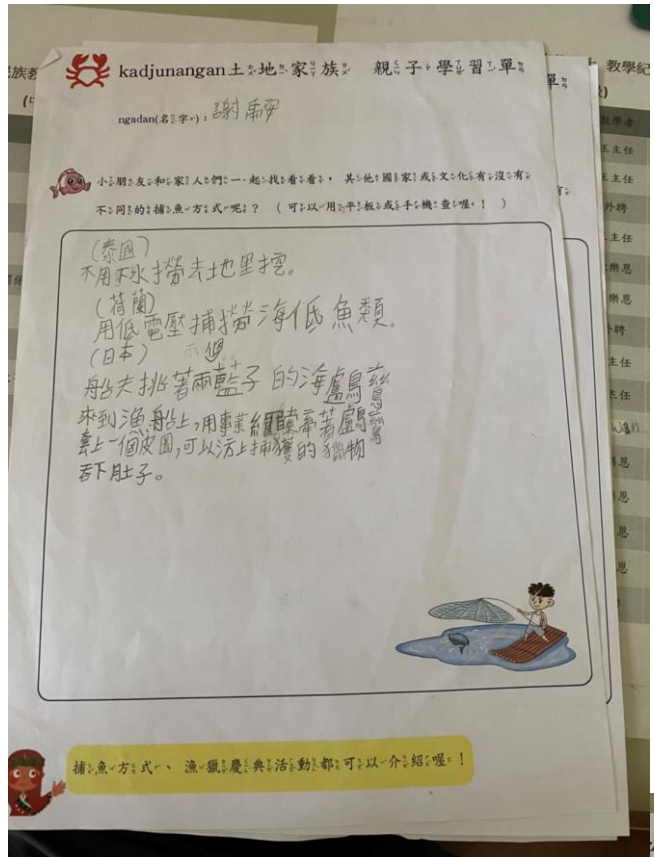 kadjunangan土地家族 親子學習單
ngadan(名字)：謝
小朋友和家人們一起找看看，其他國家或文化有沒有
不同的捕魚方式呢？（可以用平板或手機查喔！）
(泰國)
不用下水撈去地里挖。
(荷蘭)
用低電壓捕撈海低魚類。
(日本) 個
船夫挑著兩藍子的海鸕鶿
來到漁船上,用專業繩索帶著鸕鶿
套上一個皮圈,可以方上捕獲的獵物
吞下肚子。
捕魚方式、漁獵慶典活動都可以介紹喔！
教學紀
教學者
王主任
王主任
外聘
主任
樂恩
樂恩
外聘
主任
主任
恩
恩
恩
恩